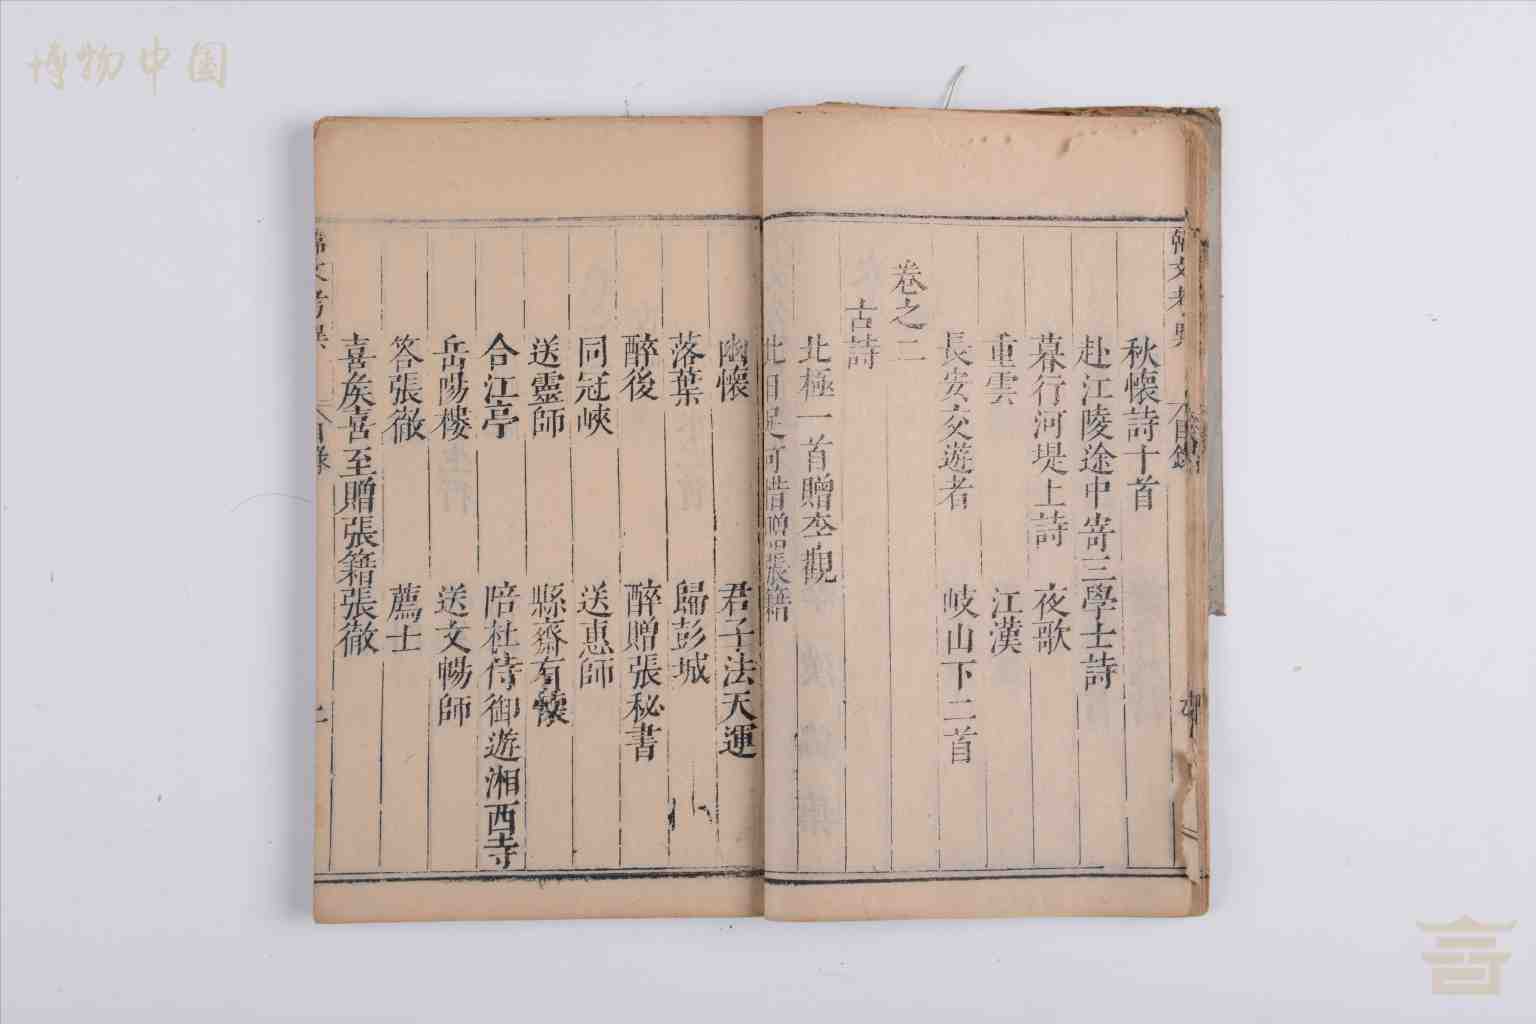 博物中国
韓文考異
目錄
秋懷詩十首
赴江陵途中寄三學士詩
暮行河堤上詩 夜歌
重雲 江漢
長安交遊者 岐山下二首
卷之二
古詩
北極一首贈李觀
此日足可惜贈張籍
幽懷 君子法天運
落葉 歸彭城
醉後 醉贈張秘書
同冠峽 送惠師
送靈師 縣齋有懷
合江亭 陪杜侍御遊湘西寺
岳陽樓 送文暢師
答張徹 薦士
喜矦喜至贈張籍張徹
韓文考異
目錄